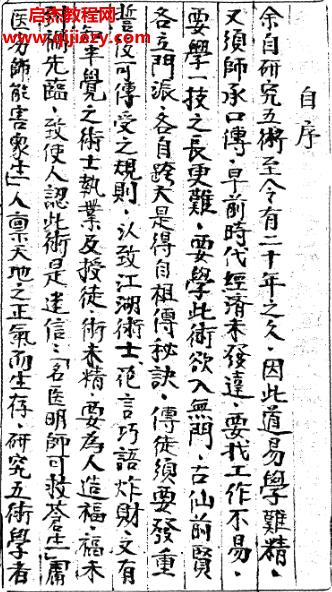 启杰教程网
qijiewp.com
自序
余自研究五術至今有二十年之久．因此道易學難精．
又須師承口傳．早前時代經濟未發達．要找工作不易．
要學一技之長更難．要學此術欲入無門．古仙前賢
各立門派．各自跨大是得自祖傳秘訣．傳徒須要發重
誓反可傳受之規則．以致江湖術士．範言巧語炸財．又有
半覺之術士執業及授徒．術未精．要為人造福．福未
禍先臨．致使人認此術是迷信．「名医明師可救蒼生」庸
医劣師能害眾生」人禀天地之正氣而生存．研究五術學者